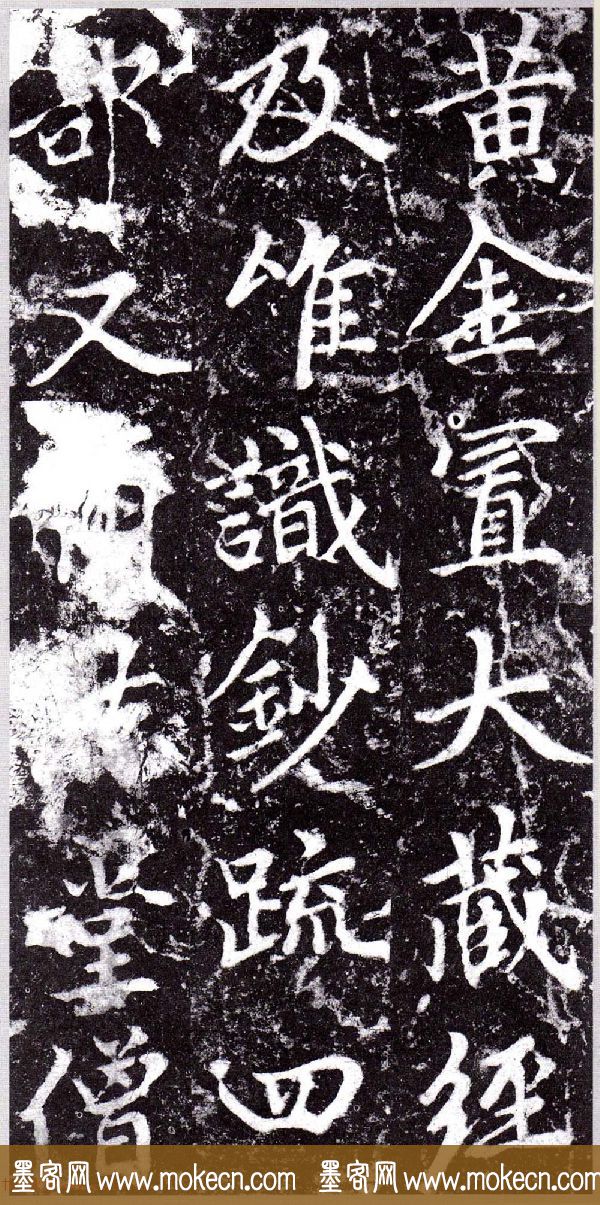 黄金置大藏经
及唯識鈔疏四
部又士堂僧
墨客网 www.mokecn.com 墨客网 www.mokecn.com